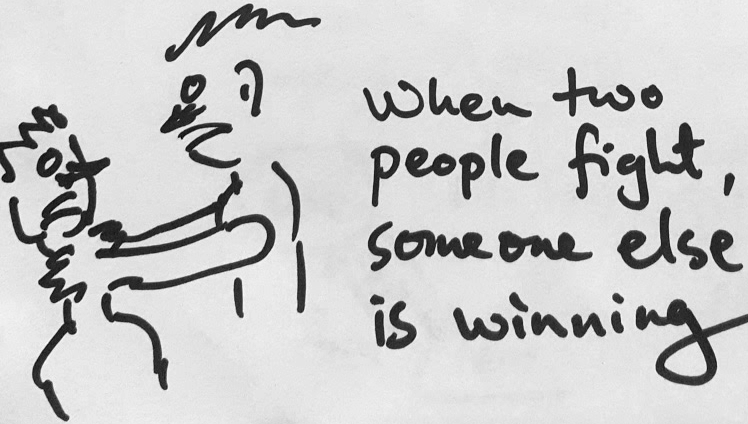 When two
people fight,
someone else
is winning